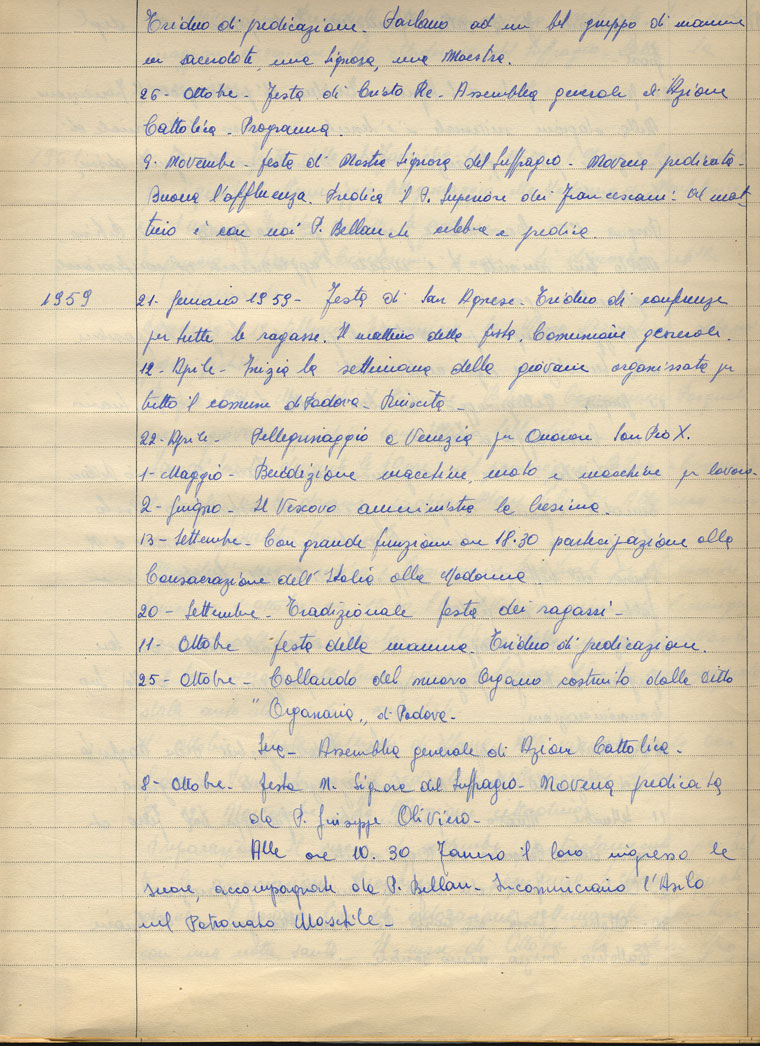 Triduo di predicazione. Parlano ad un bel gruppo di mamme
un sacerdote, una Signora, una Maestra.
26- Ottobre- Festa di Cristo Re- Assemblea generale di Azione
Cattolica- Programma
9. Novembre- festa di Nostra Signora del Suffragio- Novena predicata-
Buona l'affluenza. Predica il P. Superiore dei Francescani: Al mat-
tino è con noi P. Bellan che celebra e predica.
1959 21- Gennaio 1959- Festa di San Agnese- Triduo di conferenze
per tutte le ragazze. Il mattino della festa, Comunione generale.
12- Aprile- Inizia la settimana della giovane organizzata per
tutto il comune di Padova- Riuscita-
22- Aprile- Pellegrinaggio a Venezia per Onorare San Pio X.
1- Maggio- Benedizione macchine, moto e macchine per lavoro-
2- Giugno- Il Vescovo amministra la Cresima.
13- Settembre- Con grande funzione ore 18.30 partecipazione alla
Consacrazione dell'Italia alla Madonna.
20- Settembre- Tradizionale festa dei ragazzi-
11- Ottobre festa della mamma. Triduo di predicazione.
25- Ottobre- Collaudo del nuovo Organo costruito dalla Ditta
"Organaria" di Padova-
Sera- Assemblea generale di Azione Cattolica-
8- Ottobre- festa N. Signora del Suffragio- Novena predicata
da P. Giuseppe Oliviero-
Alle ore 10.30 fanno il loro ingresso le
suore, accompagnate da P. Bellan- Incominciano l'Asilo
nel Patronato Maschile-